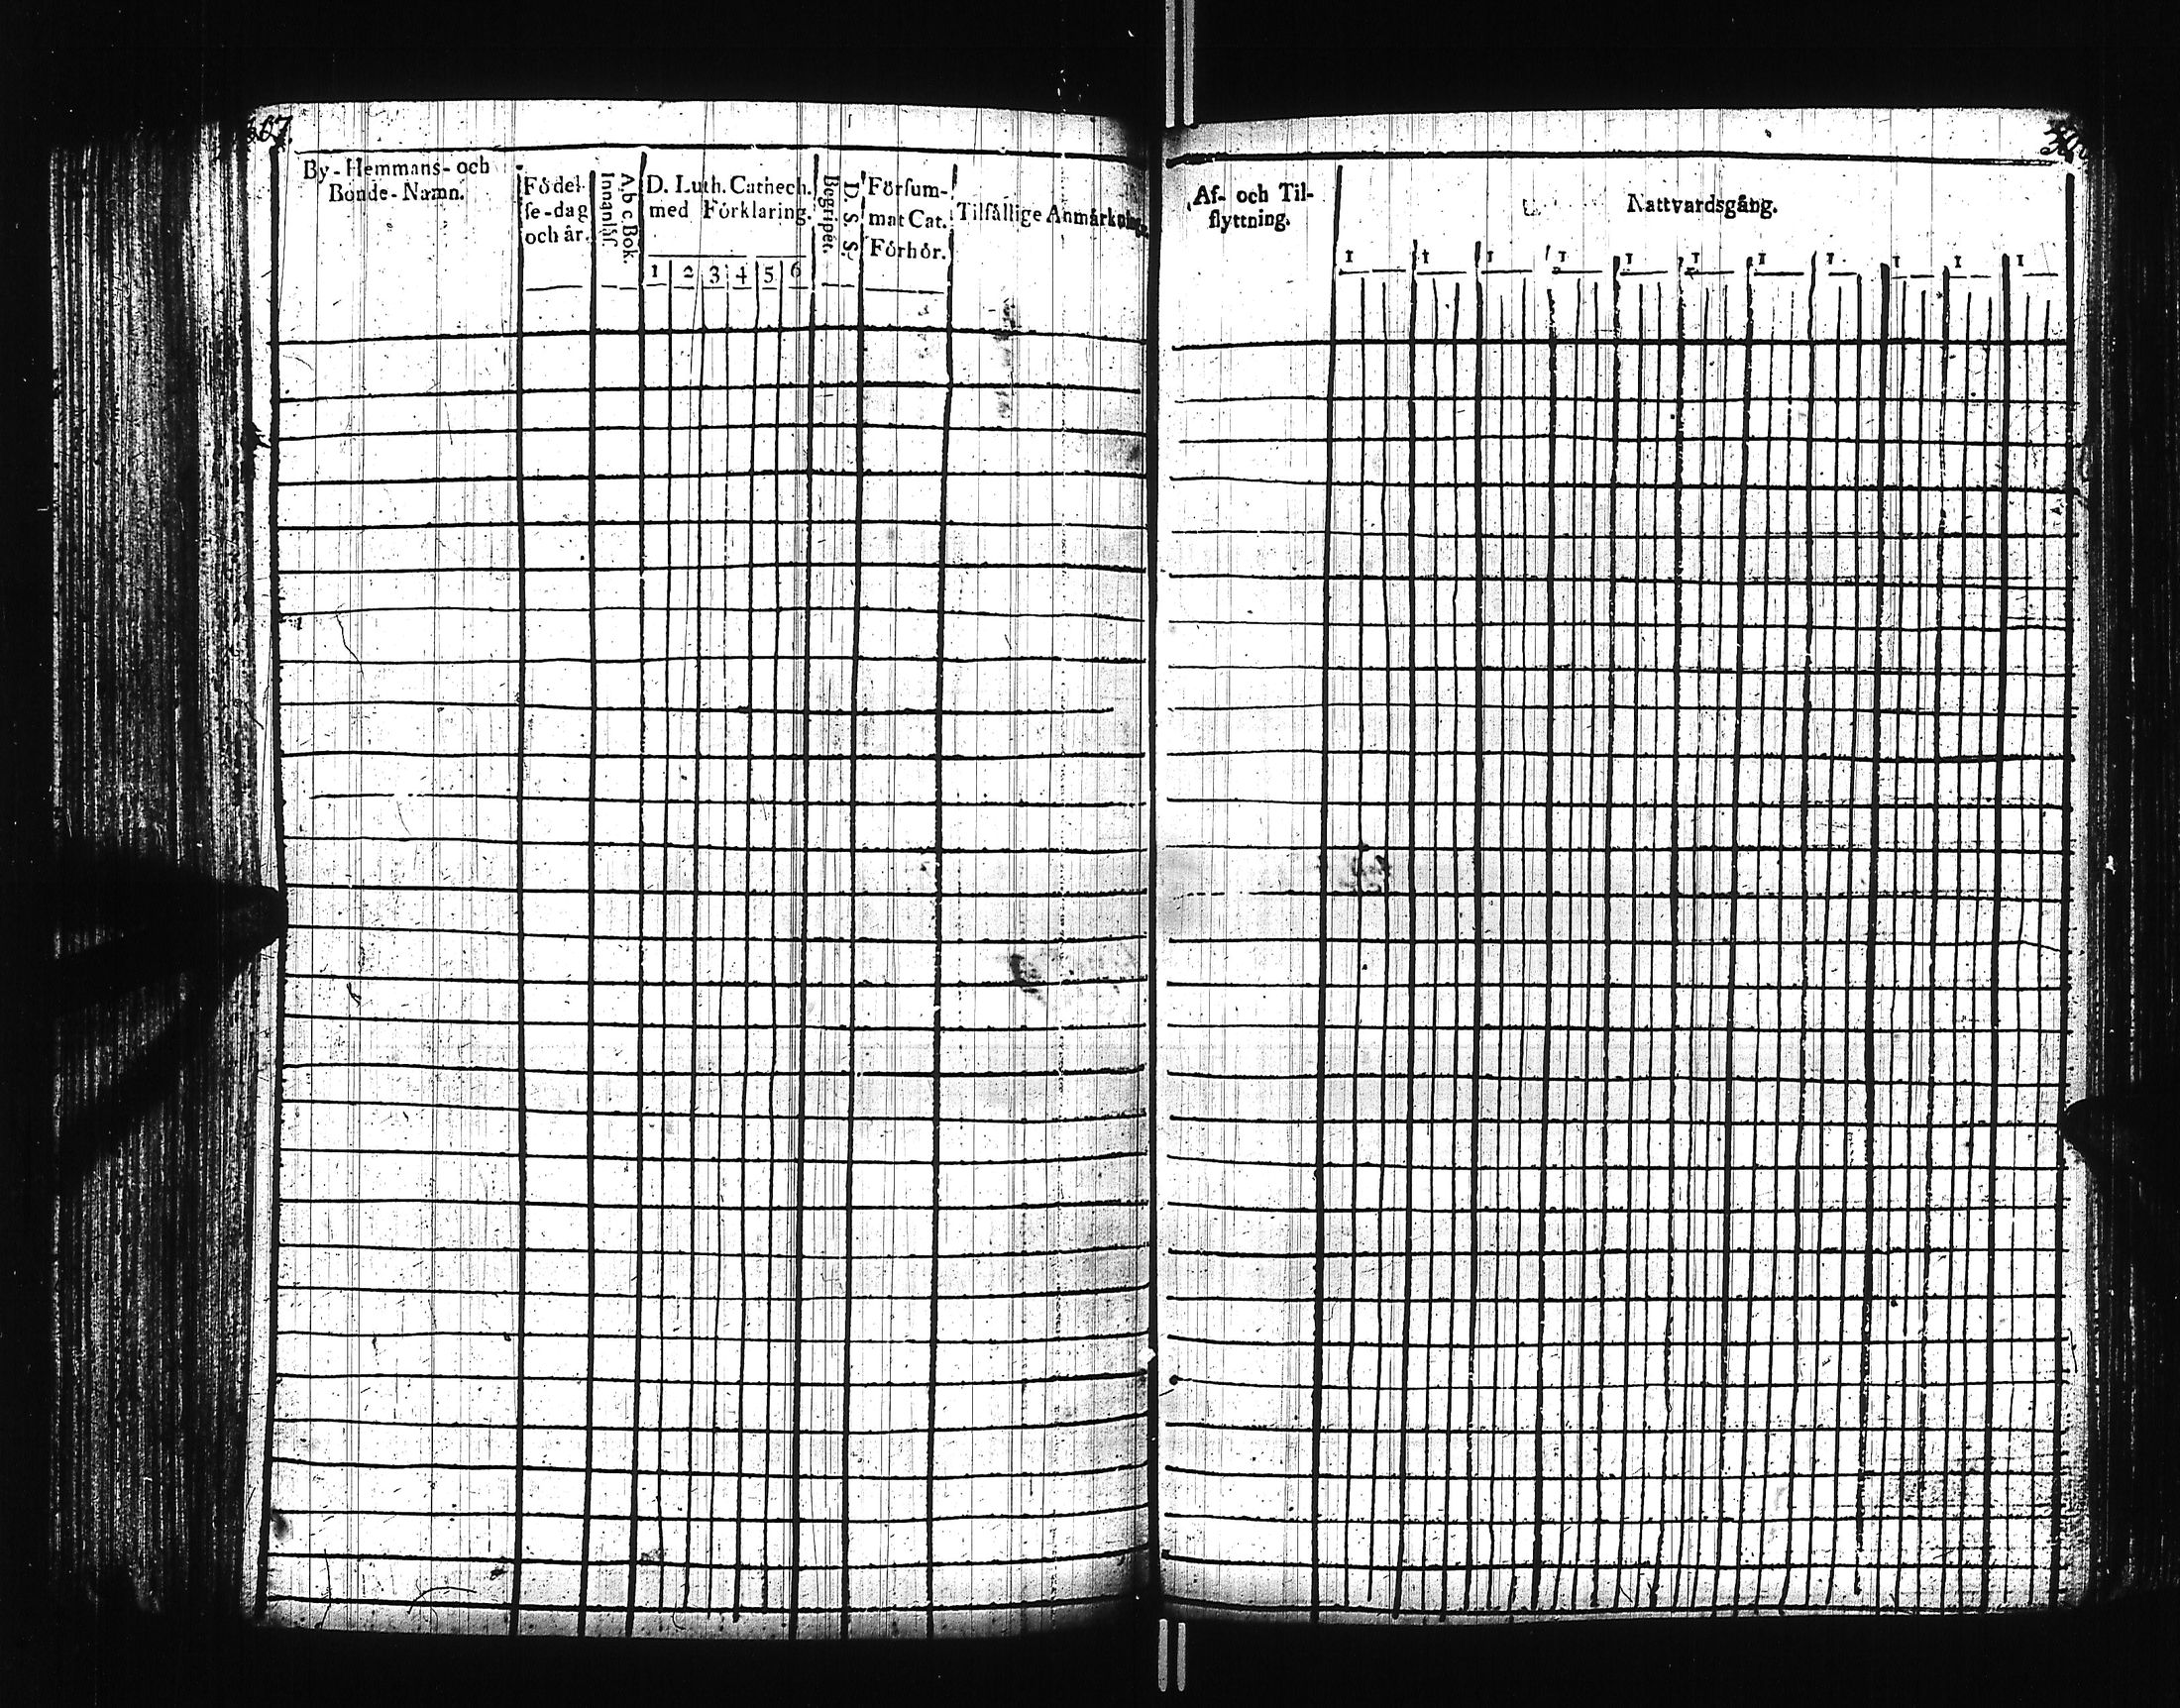 67.
By-Hemmans-och
Bonde-Namn.
Födel-
se-dag
och år.
A b c Bok.
Innanläs.
D. Luth. Cathech.
med Förklaring.
1 2 3 4 5 6
D. S. S.
Begripet.
Försum-
mat Cat.
Förhör.
Tilfällige Anmärkning.
Af- och Til-
flyttning.
Nattvardsgång.
1 1 1 1 1 1 1 1 1 1 1